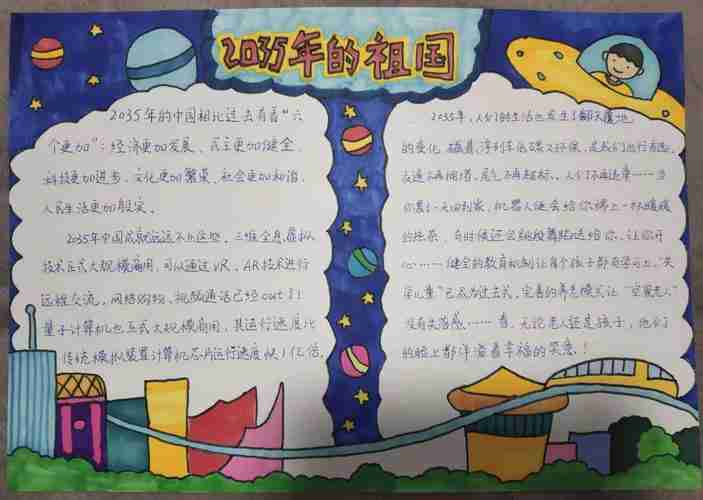 2035年的祖国
2035年的中国相比过去有着“六
个更加”：经济更加发展、民主更加健全、
科技更加进步、文化更加繁荣、社会更加和谐、
人民生活更加殷实。
2035年中国成就远远不止这些，三维全息虚拟
技术正式大规模商用，可以通过VR、AR技术进行
远程交流，网络购物、视频通话已经out了!
量子计算机也正式大规模商用，其运行速度比
传统模拟装置计算机芯片运行速度快1亿倍。
2035年，人们的生活也发生了翻天覆地
的变化，磁悬浮列车低碳又环保，是我们出行首选，
交通不再拥堵，尾气不再超标，人们不再违章……当
你累了一天回到家，机器人便会给你端上一杯暖暖
的热茶，有时候还会跳段舞蹈送给你，让你开
心……健全的教育机制让每个孩子都有学可上，“失
学儿童”已成为过去式，完善的养老模式让“空巢老人”
没有失落感……看，无论老人还是孩子，他们
的脸上都洋溢着幸福的笑意!